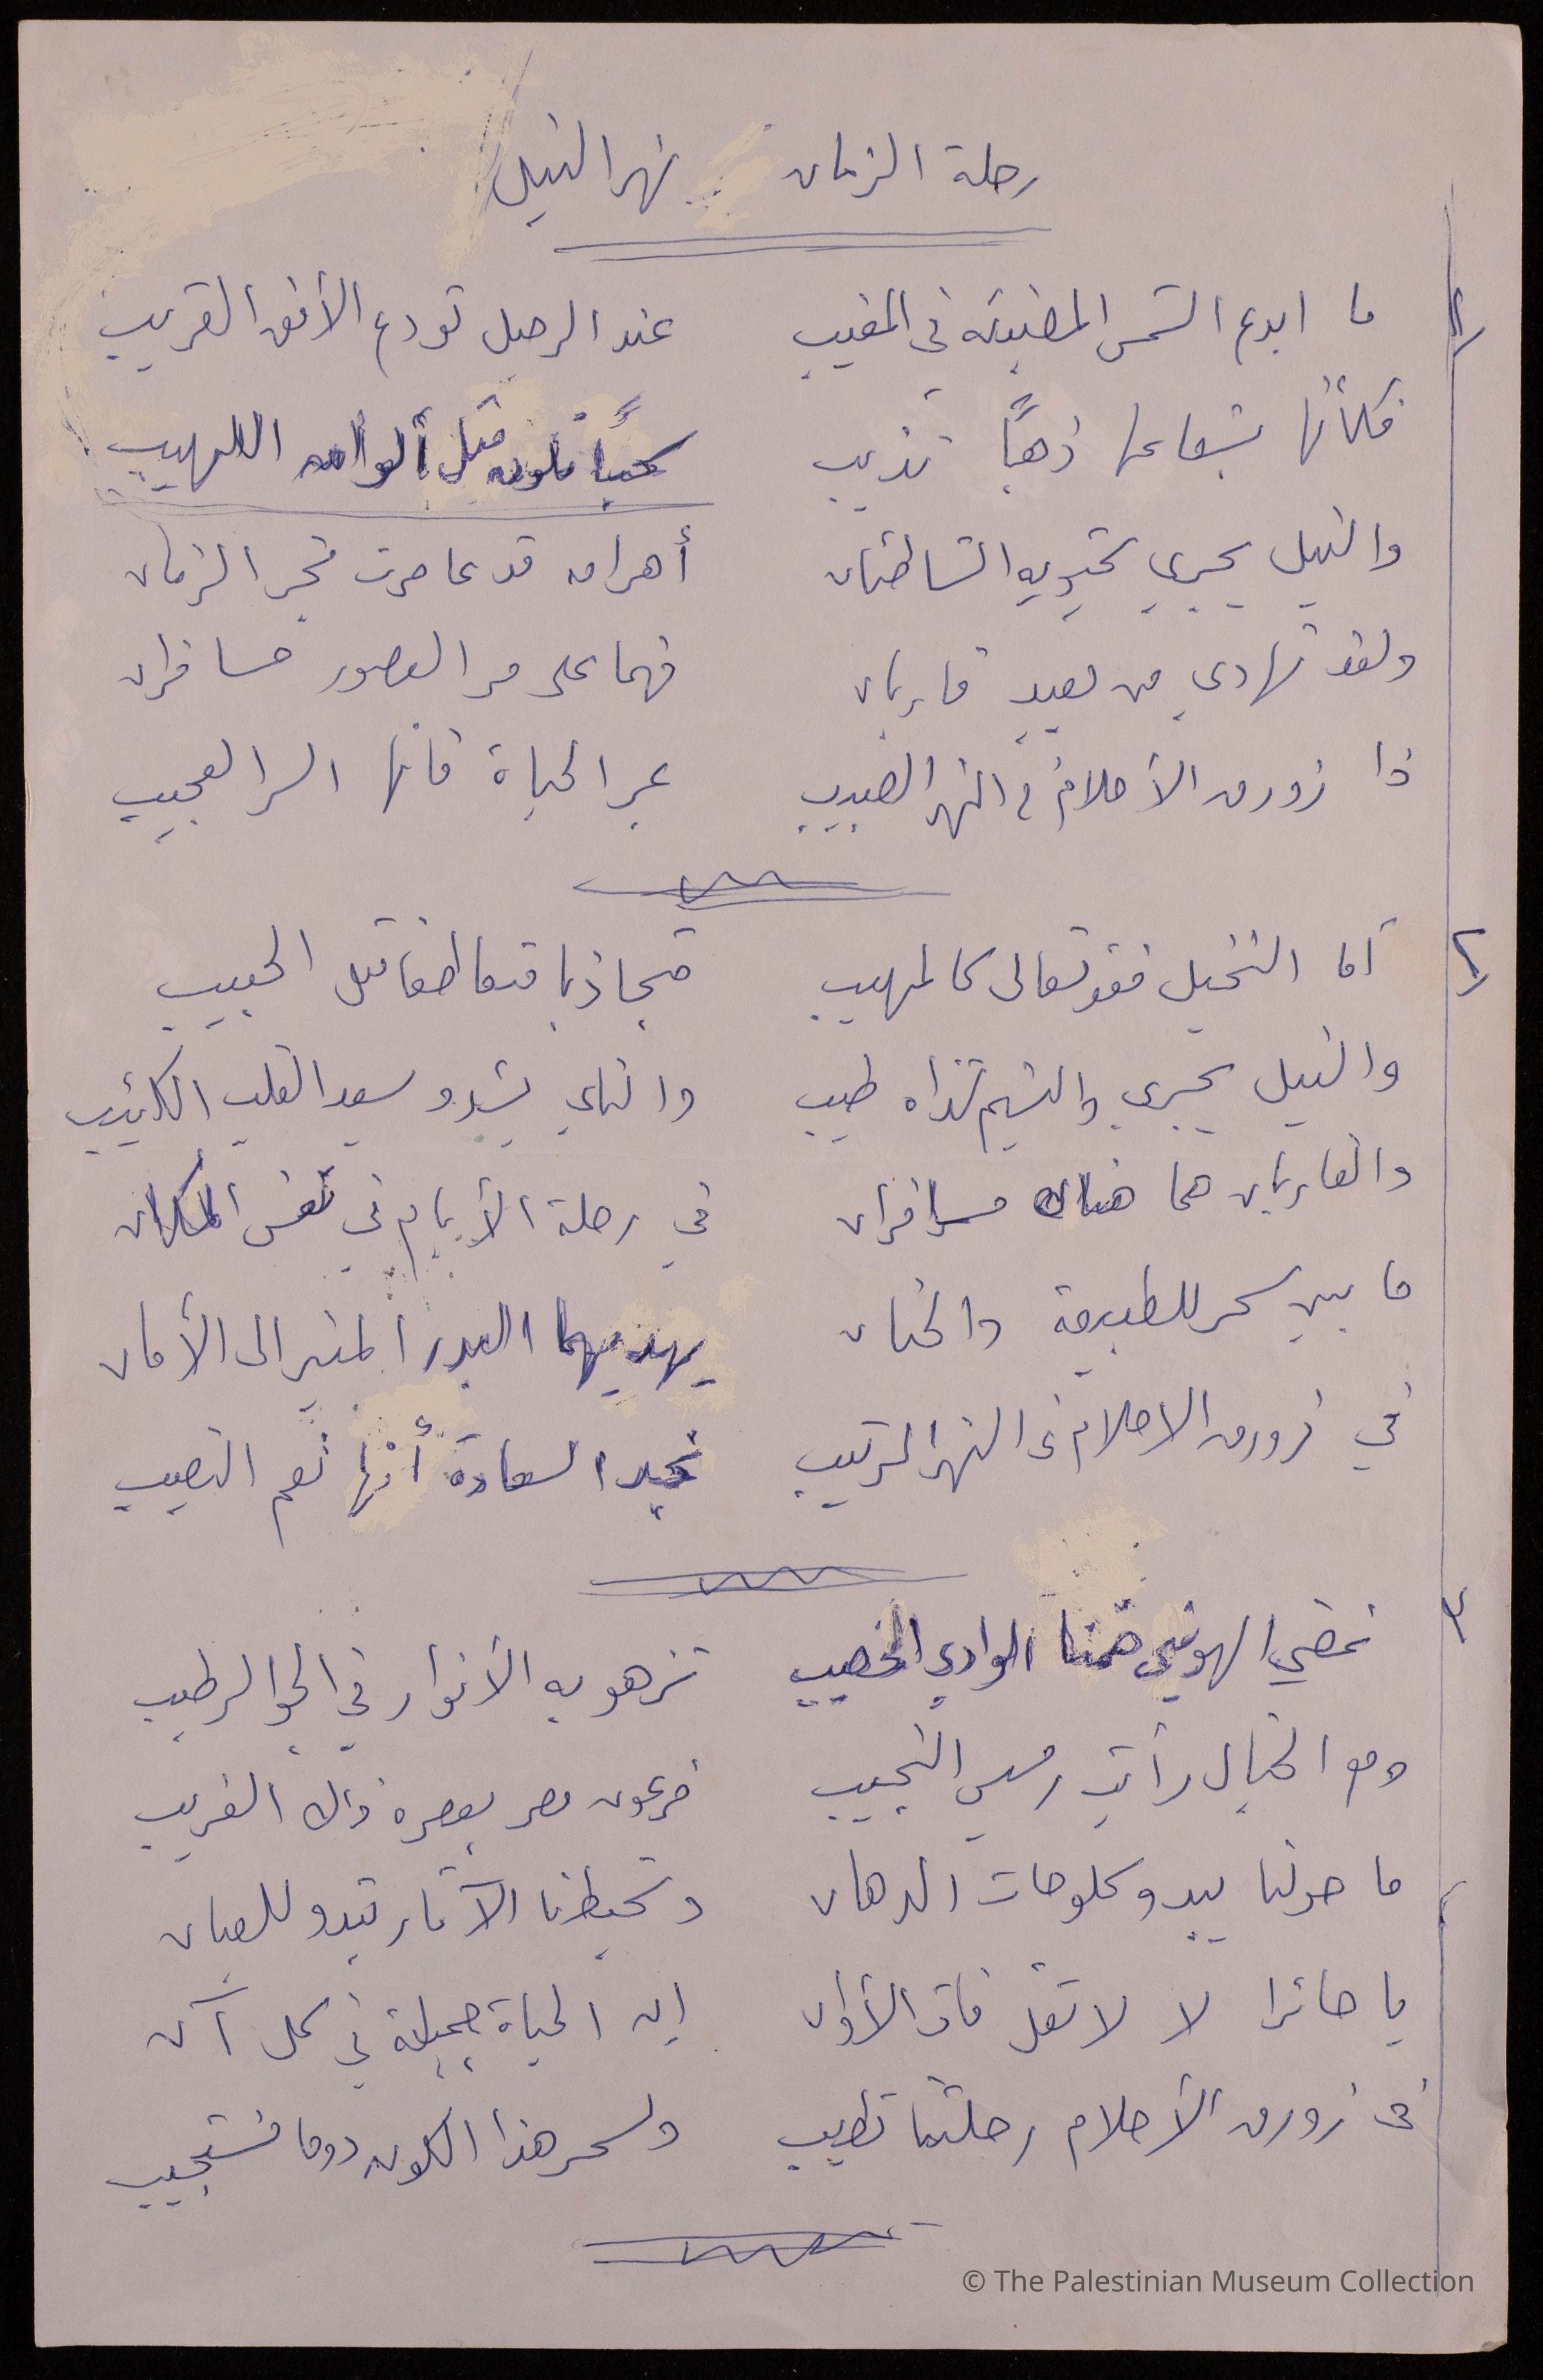 رحلة الزمان .. نهر النيل
١/ ما ابدع الشمس المضيئة في المغيب عند الرحيل تودع الأفق القريب
فكأنها بشعاعها ذهبًا تذيب سحبًا تلون مثل ألوان اللهيب
والنيل يجري يحتويه الشاطئان أهرام قد عاصرت فجر الزمان
ولقد تهادى من بعيد قاربان فهما على مر العصور مسافران
ذا زورق الأحلام في النهر العجيب عبر الحياة فانها السر العجيب
٢/ أما النخيل فقد تعالى كالمهيب متجاذبا متعاطفا مثل الحبيب
والنيل يجري والنسيم شذاه طيب والناي يشدو يسعد القلب الكئيب
والقاربان هما هناك مسافران في رحلة الأيام في نفس المكان
ما بين سحر للطبيعة والحنان يهديهما البدر المنير الى الأمان
في زورق الاحلام في النهر الرتيب نجد السعادة أنها نعم النصيب
٣ نمضي الهوينى ضمنا الوادي الخصيب تزهو به الأنوار في الجو الرطيب
ومع الخيال رأيت رمسيس النجيب فرعون مصر بعصره ذاك الغريب
ما حولنا يبدو كلوحات الدهان وتحيطنا الآثار تبدو للعيان
يا حائرا لا لا تقل فات الأوان إن الحياة جميلة في كل آن
في زورق الأحلام رحلتنا تطيب ولسحر هذا الكون دوما نستجيب
© The Palestinian Museum Collection